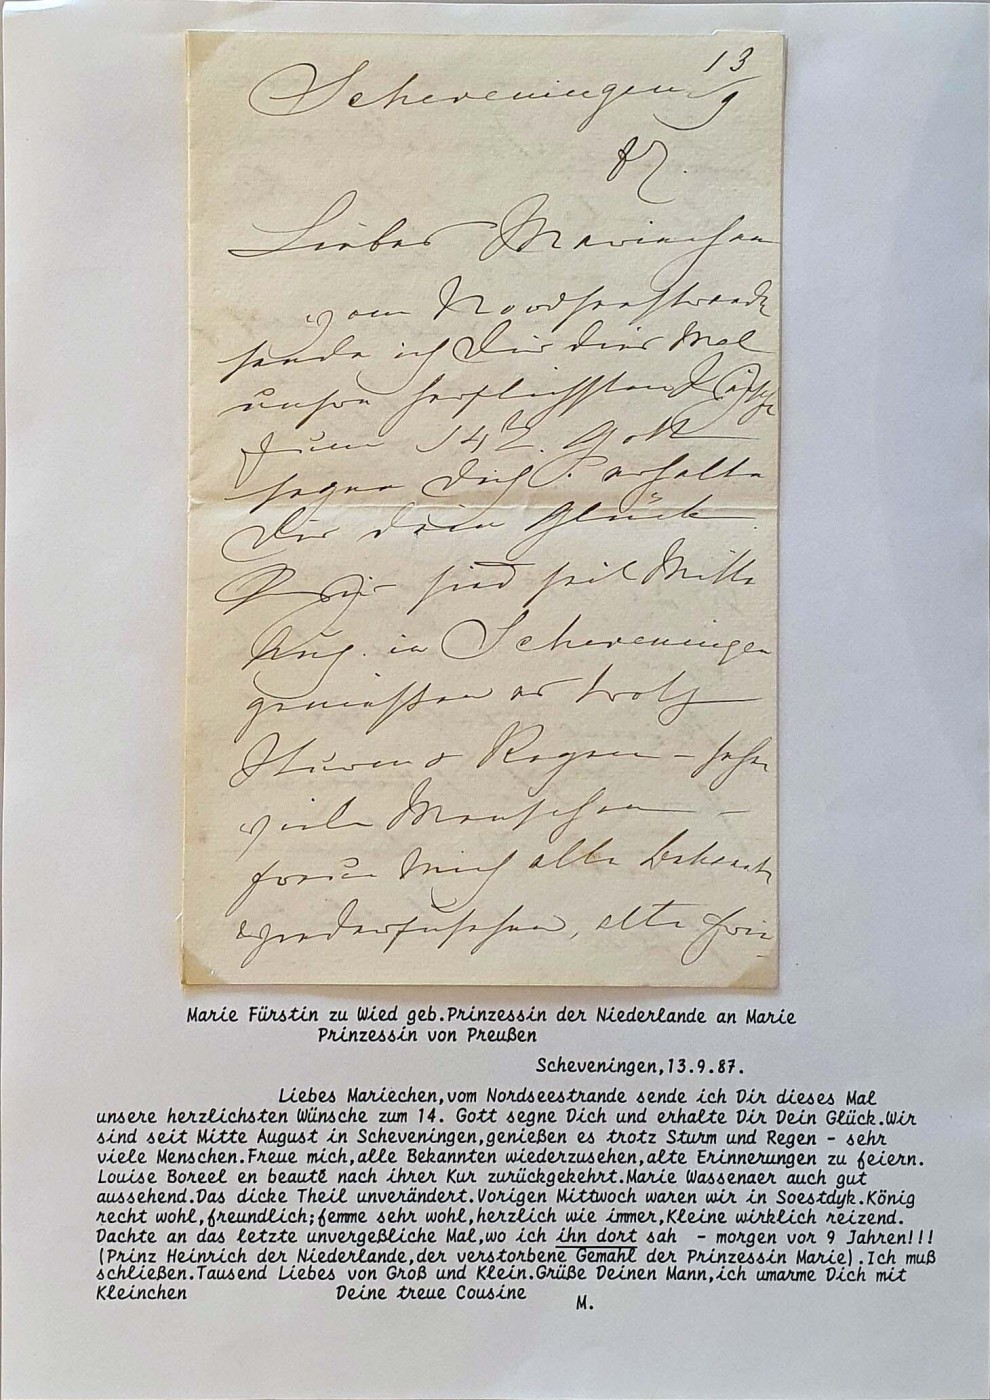 Scheveningen 13/9
87.
Liebes Mariechen
vom Nordseestrande
sende ich Dir dies Mal
unsre herzlichsten Wünsche
zum 14t. Gott
segne Dich & erhalte
Dir dein Glück
Wir sind seit Mitte
Aug. in Scheveningen
geniessen es trotz
Sturm & Regen – sehr
viele Menschen –
freue mich alle Bekannte
wiederzusehen, alte Erin-
Marie Fürstin zu Wied geb.Prinzessin der Niederlande an Marie
Prinzessin von Preußen
Scheveningen,13.9.87.
Liebes Mariechen,vom Nordseestrande sende ich Dir dieses Mal
unsere herzlichsten Wünsche zum 14. Gott segne Dich und erhalte Dir Dein Glück.Wir
sind seit Mitte August in Scheveningen,genießen es trotz Sturm und Regen - sehr
viele Menschen.Freue mich,alle Bekannten wiederzusehen,alte Erinnerungen zu feiern.
Louise Boreel en beauté nach ihrer Kur zurückgekehrt.Marie Wassenaer auch gut
aussehend.Das dicke Theil unverändert.Vorigen Mittwoch waren wir in Soestdyk.König
recht wohl,freundlich;femme sehr wohl,herzlich wie immer,Kleine wirklich reizend.
Dachte an das letzte unvergeßliche Mal,wo ich ihn dort sah - morgen vor 9 Jahren!!!
(Prinz Heinrich der Niederlande,der verstorbene Gemahl der Prinzessin Marie).Ich muß
schließen.Tausend Liebes von Groß und Klein.Grüße Deinen Mann,ich umarme Dich mit
Kleinchen Deine treue Cousine
M.